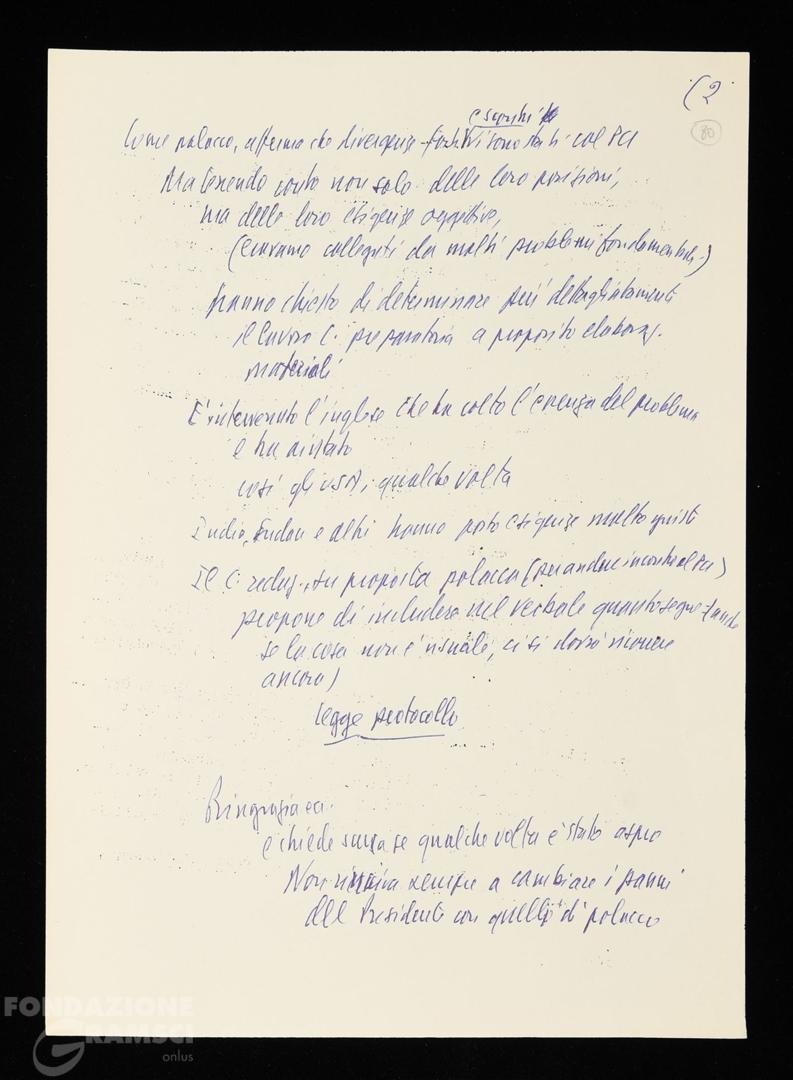 (2
80
e scontri
Come polacco, afferma che divergenze forti vi sono stati col PCI
Ma tenendo conto non solo delle loro posizioni,
ma delle loro esigenze oggettive,
(eravamo collegati da molti problemi fondamentali)
hanno chiesto di determinare più dettagliatamente
il lavoro C. preparatoria a proposito elaboraz.
materiali
E' intervenuto l'inglese che ha colto l'essenza del problema
e ha aiutato
così gli USA, qualche volta
India, Sudan e altri hanno posto esigenze molto giuste
Il C. redaz., su proposta polacca ( incontro al PCI)
propone di includere nel verbale quanto segue (anche
se la cosa non è usuale, ci si dovrà ricorrere
ancora)
Legge protocollo
Ringrazia ec.
e chiede scusa se qualche volta è stato aspro
Non riusciva sempre a cambiare i panni
del Presidente con quelli di polacco
FONDAZIONE
GRAMSCI
onlus